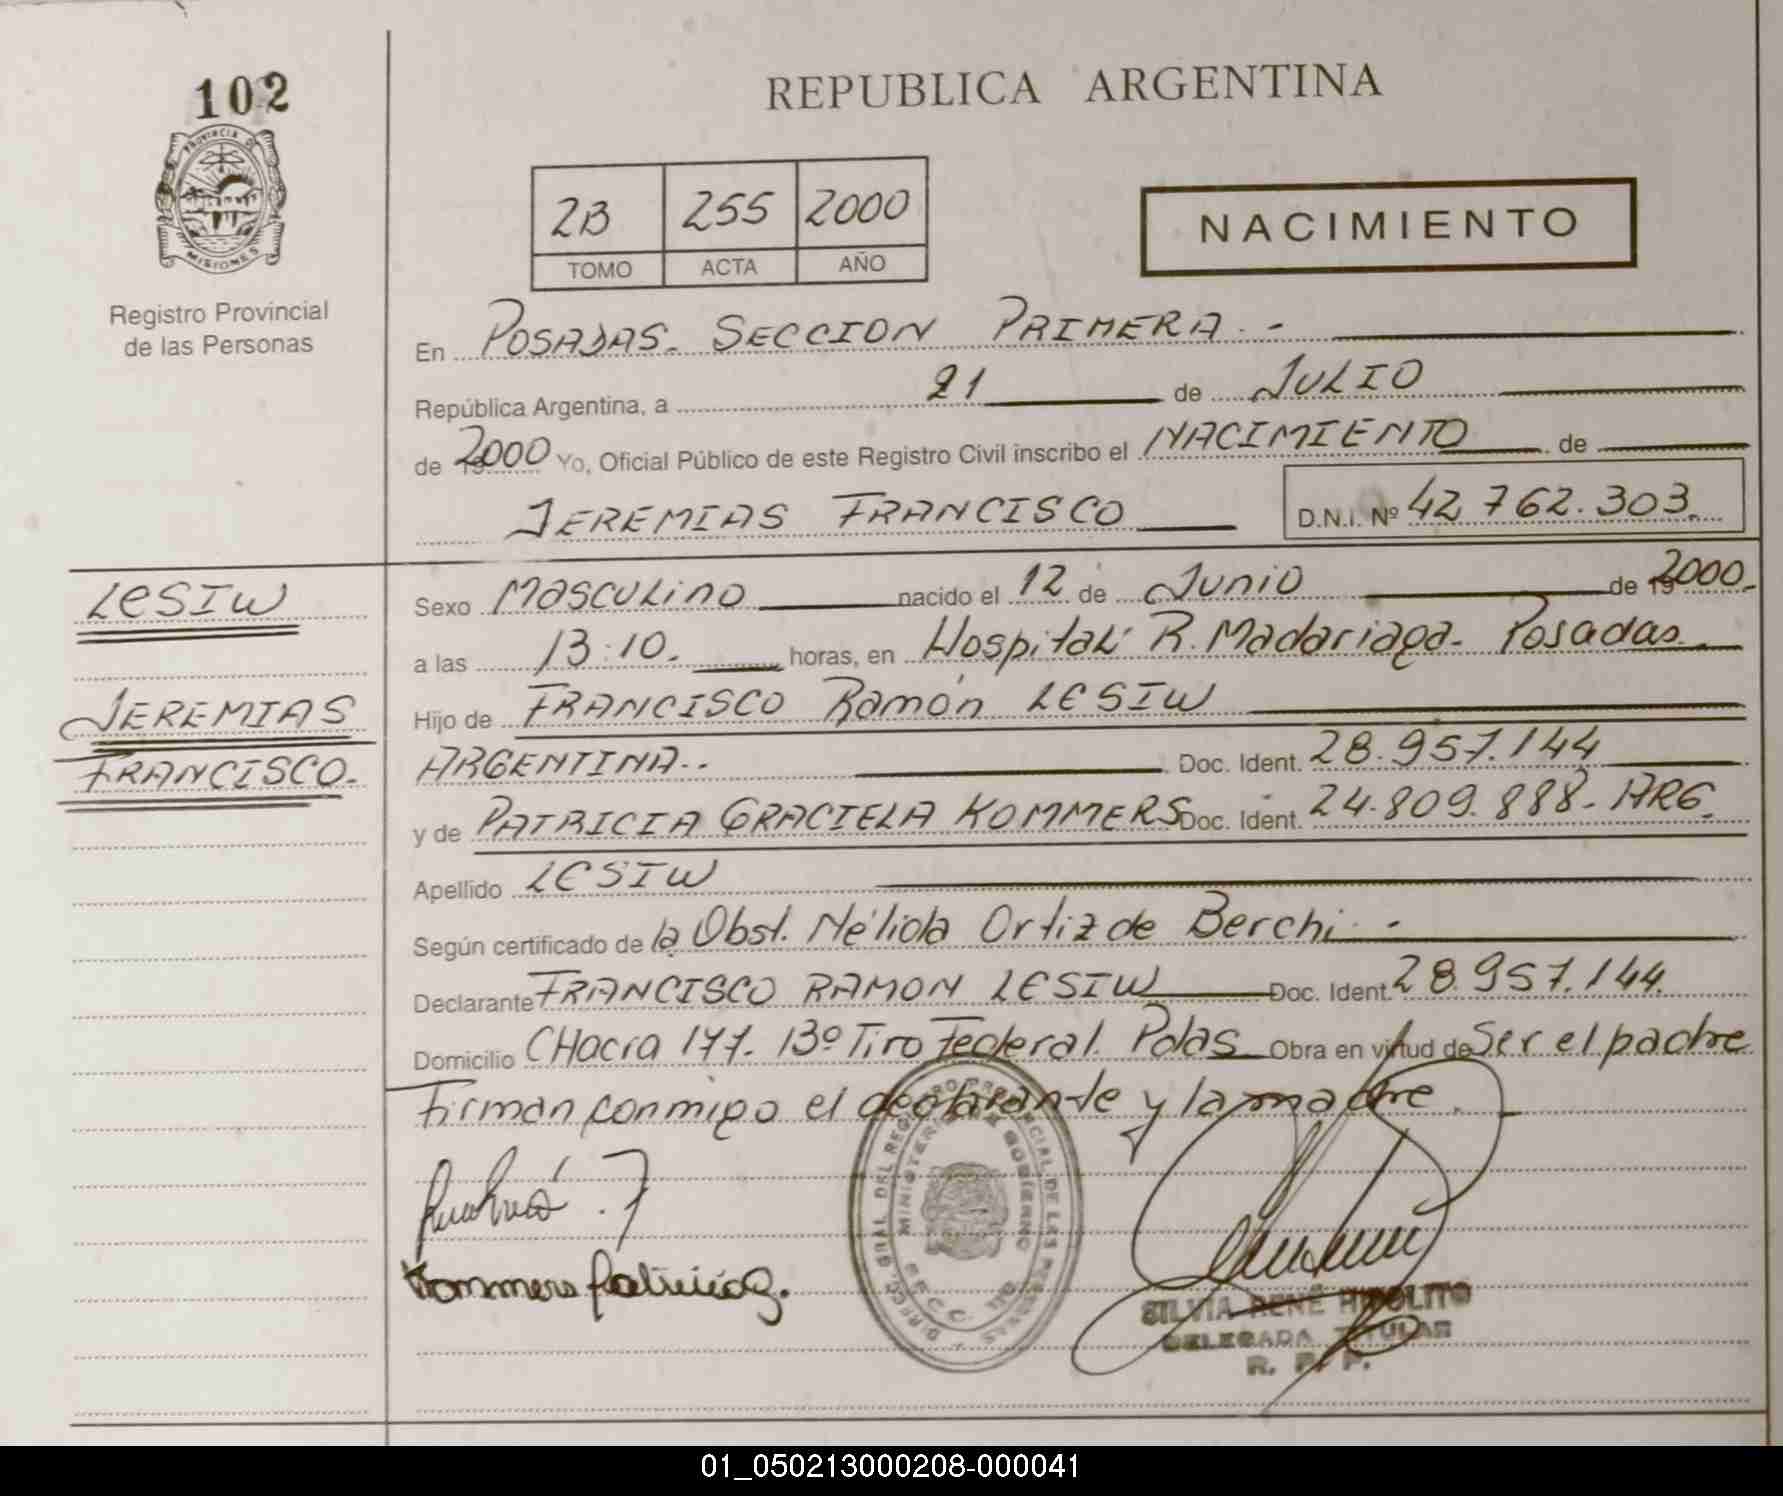 102
PROVINCIA DE
MISIONES
Registro Provincial
de las Personas
REPUBLICA ARGENTINA
2B 255 2000
TOMO ACTA AÑO
NACIMIENTO
En POSADAS. SECCION PRIMERA.-
República Argentina, a 21 de JULIO
de 2000 Yo, Oficial Público de este Registro Civil inscribo el NACIMIENTO de
JEREMIAS FRANCISCO D.N.I. Nº 42.762.303.
LESIW
JEREMIAS
FRANCISCO.
Sexo Masculino nacido el 12 de Junio de 2000.-
a las 13:10. horas, en Hospital R. Madariaga. Posadas.
Hijo de FRANCISCO Ramón LESIW
ARGENTINA.. Doc. Ident. 28.957.144
y de PATRICIA GRACIELA KOMMERS Doc. Ident. 24.809.888- ARG.
Apellido LESIW
Según certificado de la Obst. Nélida Ortiz de Berchi.-
Declarante FRANCISCO RAMON LESIW Doc. Ident. 28.957.144.
Domicilio CHacra 177. 13º Tiro Federal. Pdas. Obra en virtud de Ser el padre
Firman conmigo el declarante y la madre.
Kommers Patricia G.
DIRECC. GRAL. DEL REGISTRO PROVINCIAL DE LAS PERSONAS
MINISTERIO DE GOBIERNO
SECC. 1ra
SILVIA RENÉ HIPOLITO
DELEGADA TITULAR
R. P. P.
01_050213000208-000041